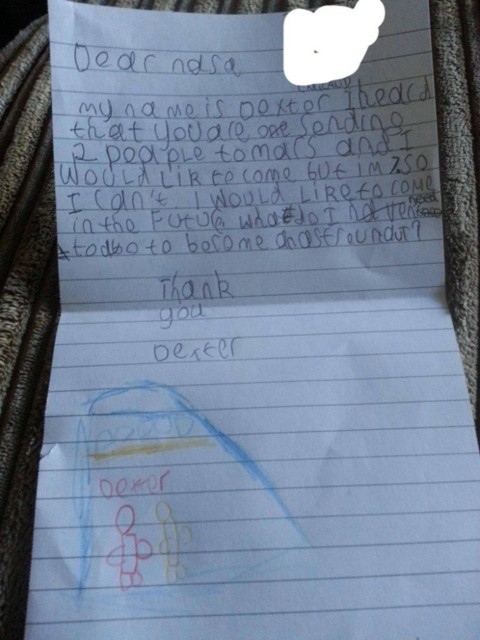 Dear nasa
my name is Dexter I heard
that you are sending
2 people to mars and I
would like to come but im 7 so
I can't I would like to come
in the future what do I need
to do to become an astrounaut?
Thank
you
Dexter
Dexter